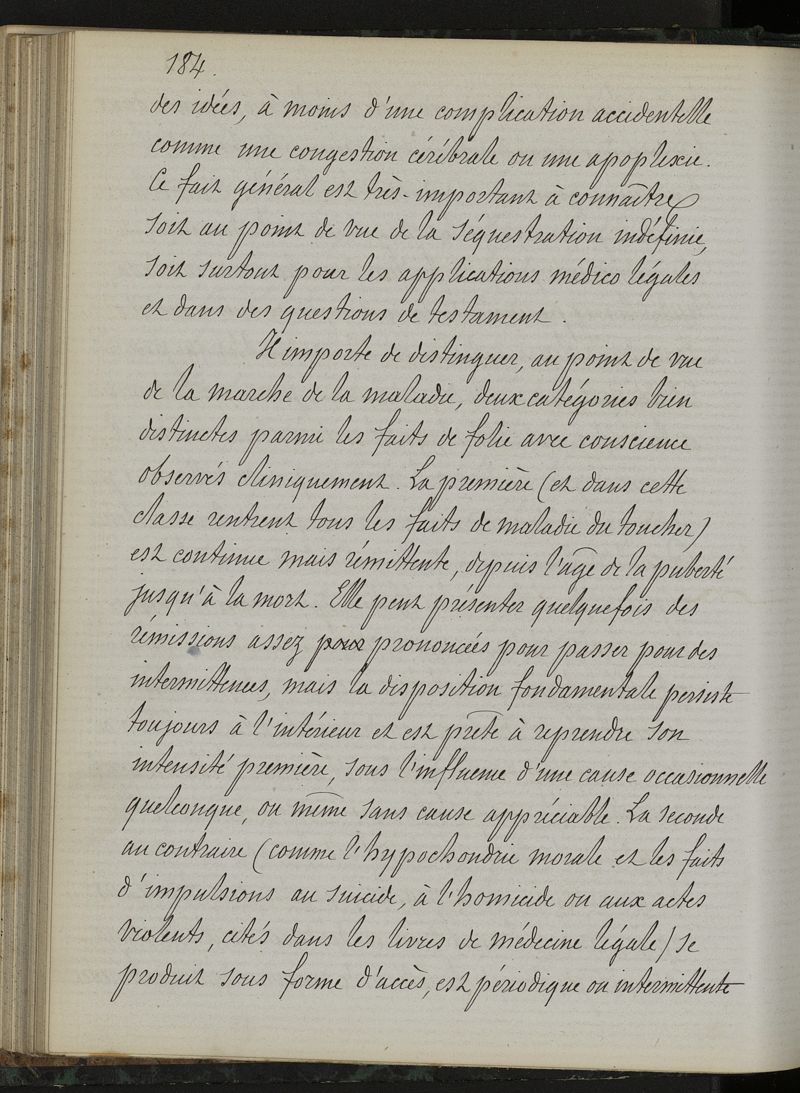 184.
des idées, à moins d'une complication accidentelle
comme une congestion cérébrale ou une apoplexie.
Ce fait général est très-important à connaître
soit au point de vue de la séquestration indéfinie,
soit surtout pour les applications médico légales
et dans des questions de testament.
Il importe de distinguer, au point de vue
de la marche de la maladie, deux catégories bien
distinctes parmi les faits de folie avec conscience
observés cliniquement. La première (et dans cette
classe rentrent tous les faits de maladie du toucher)
est continue mais rémittente, depuis l'âge de la puberté
jusqu'à la mort. Elle peut présenter quelquefois des
rémissions assez pour prononcées pour passer pour des
intermittences, mais la disposition fondamentale persiste
toujours à l'intérieur et est prête à reprendre son
intensité première, sous l'influence d'une cause occasionnelle
quelconque, ou même sans cause appréciable. La seconde
au contraire (comme l'hypochondrie morale et les faits
d'impulsions au suicide, à l'homicide ou aux actes
violents, cités dans les livres de médecine légale) se
produit sous forme d'accès, est périodique ou intermittente